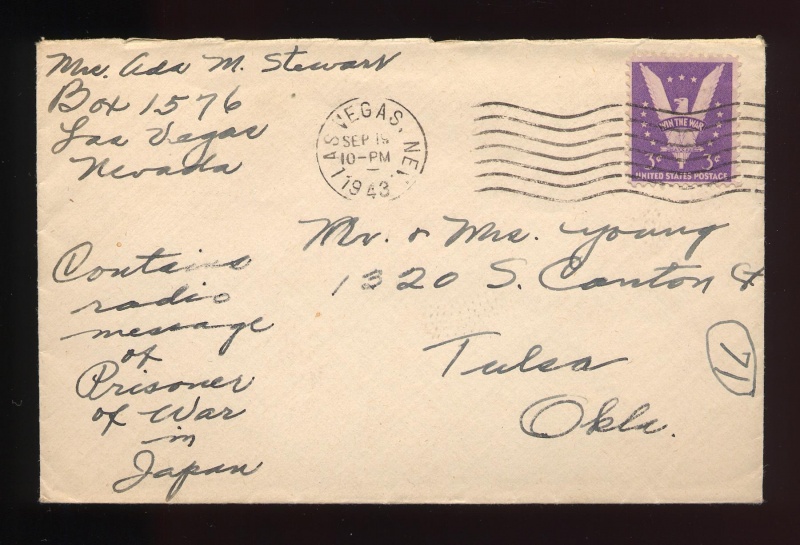 Mrs. Ada M. Stewart
Box 1576
Las Vegas
Nevada
LAS VEGAS, NEV.
SEP 1
10-PM
1943
WIN THE WAR
3¢ 3¢
UNITED STATES POSTAGE
Mr. & Mrs. Young
1320 S. Canton
Tulsa
Okla.
Contains
radio
message
of
Prisoner
of War
in
Japan